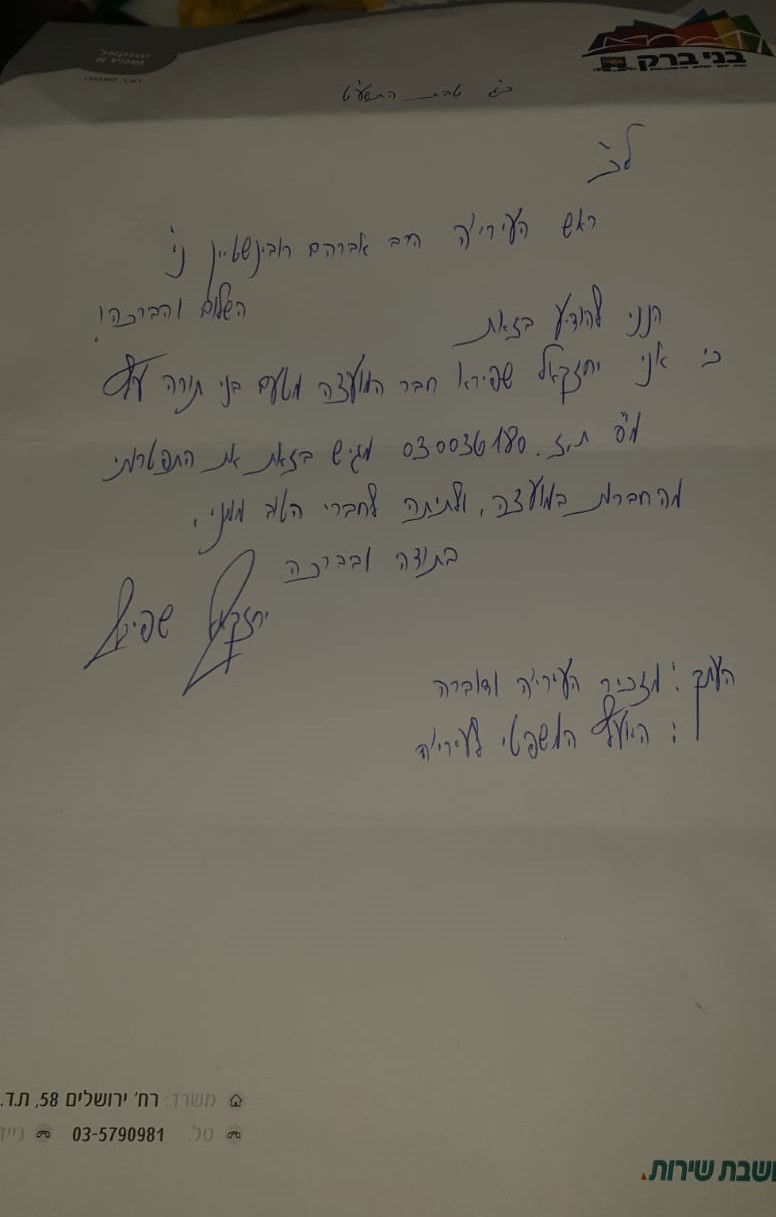 בני ברק
יחזקאל
כ"ג טבת התשע"ט
לכ'
ראש העירי'ה הרב אברהם רובינשטיין ני'
השלום והברכה!
הנני להודיע בזאת
כי אני יחזקאל שפירא חבר המועצה מטעם בני תורה
מס' ת.ז. 030036180 מגיש בזאת את התפטרותי
מהחברות במועצה,
בתודה ובברכה
יחזקאל שפירא
העתק: מזכיר העירי'ה ודוברה
: היועץ המשפטי לעירי'ה
משרד: רח' ירושלים 58, ת.ד.
טל. 03-5790981 נייד
שבת שירות.